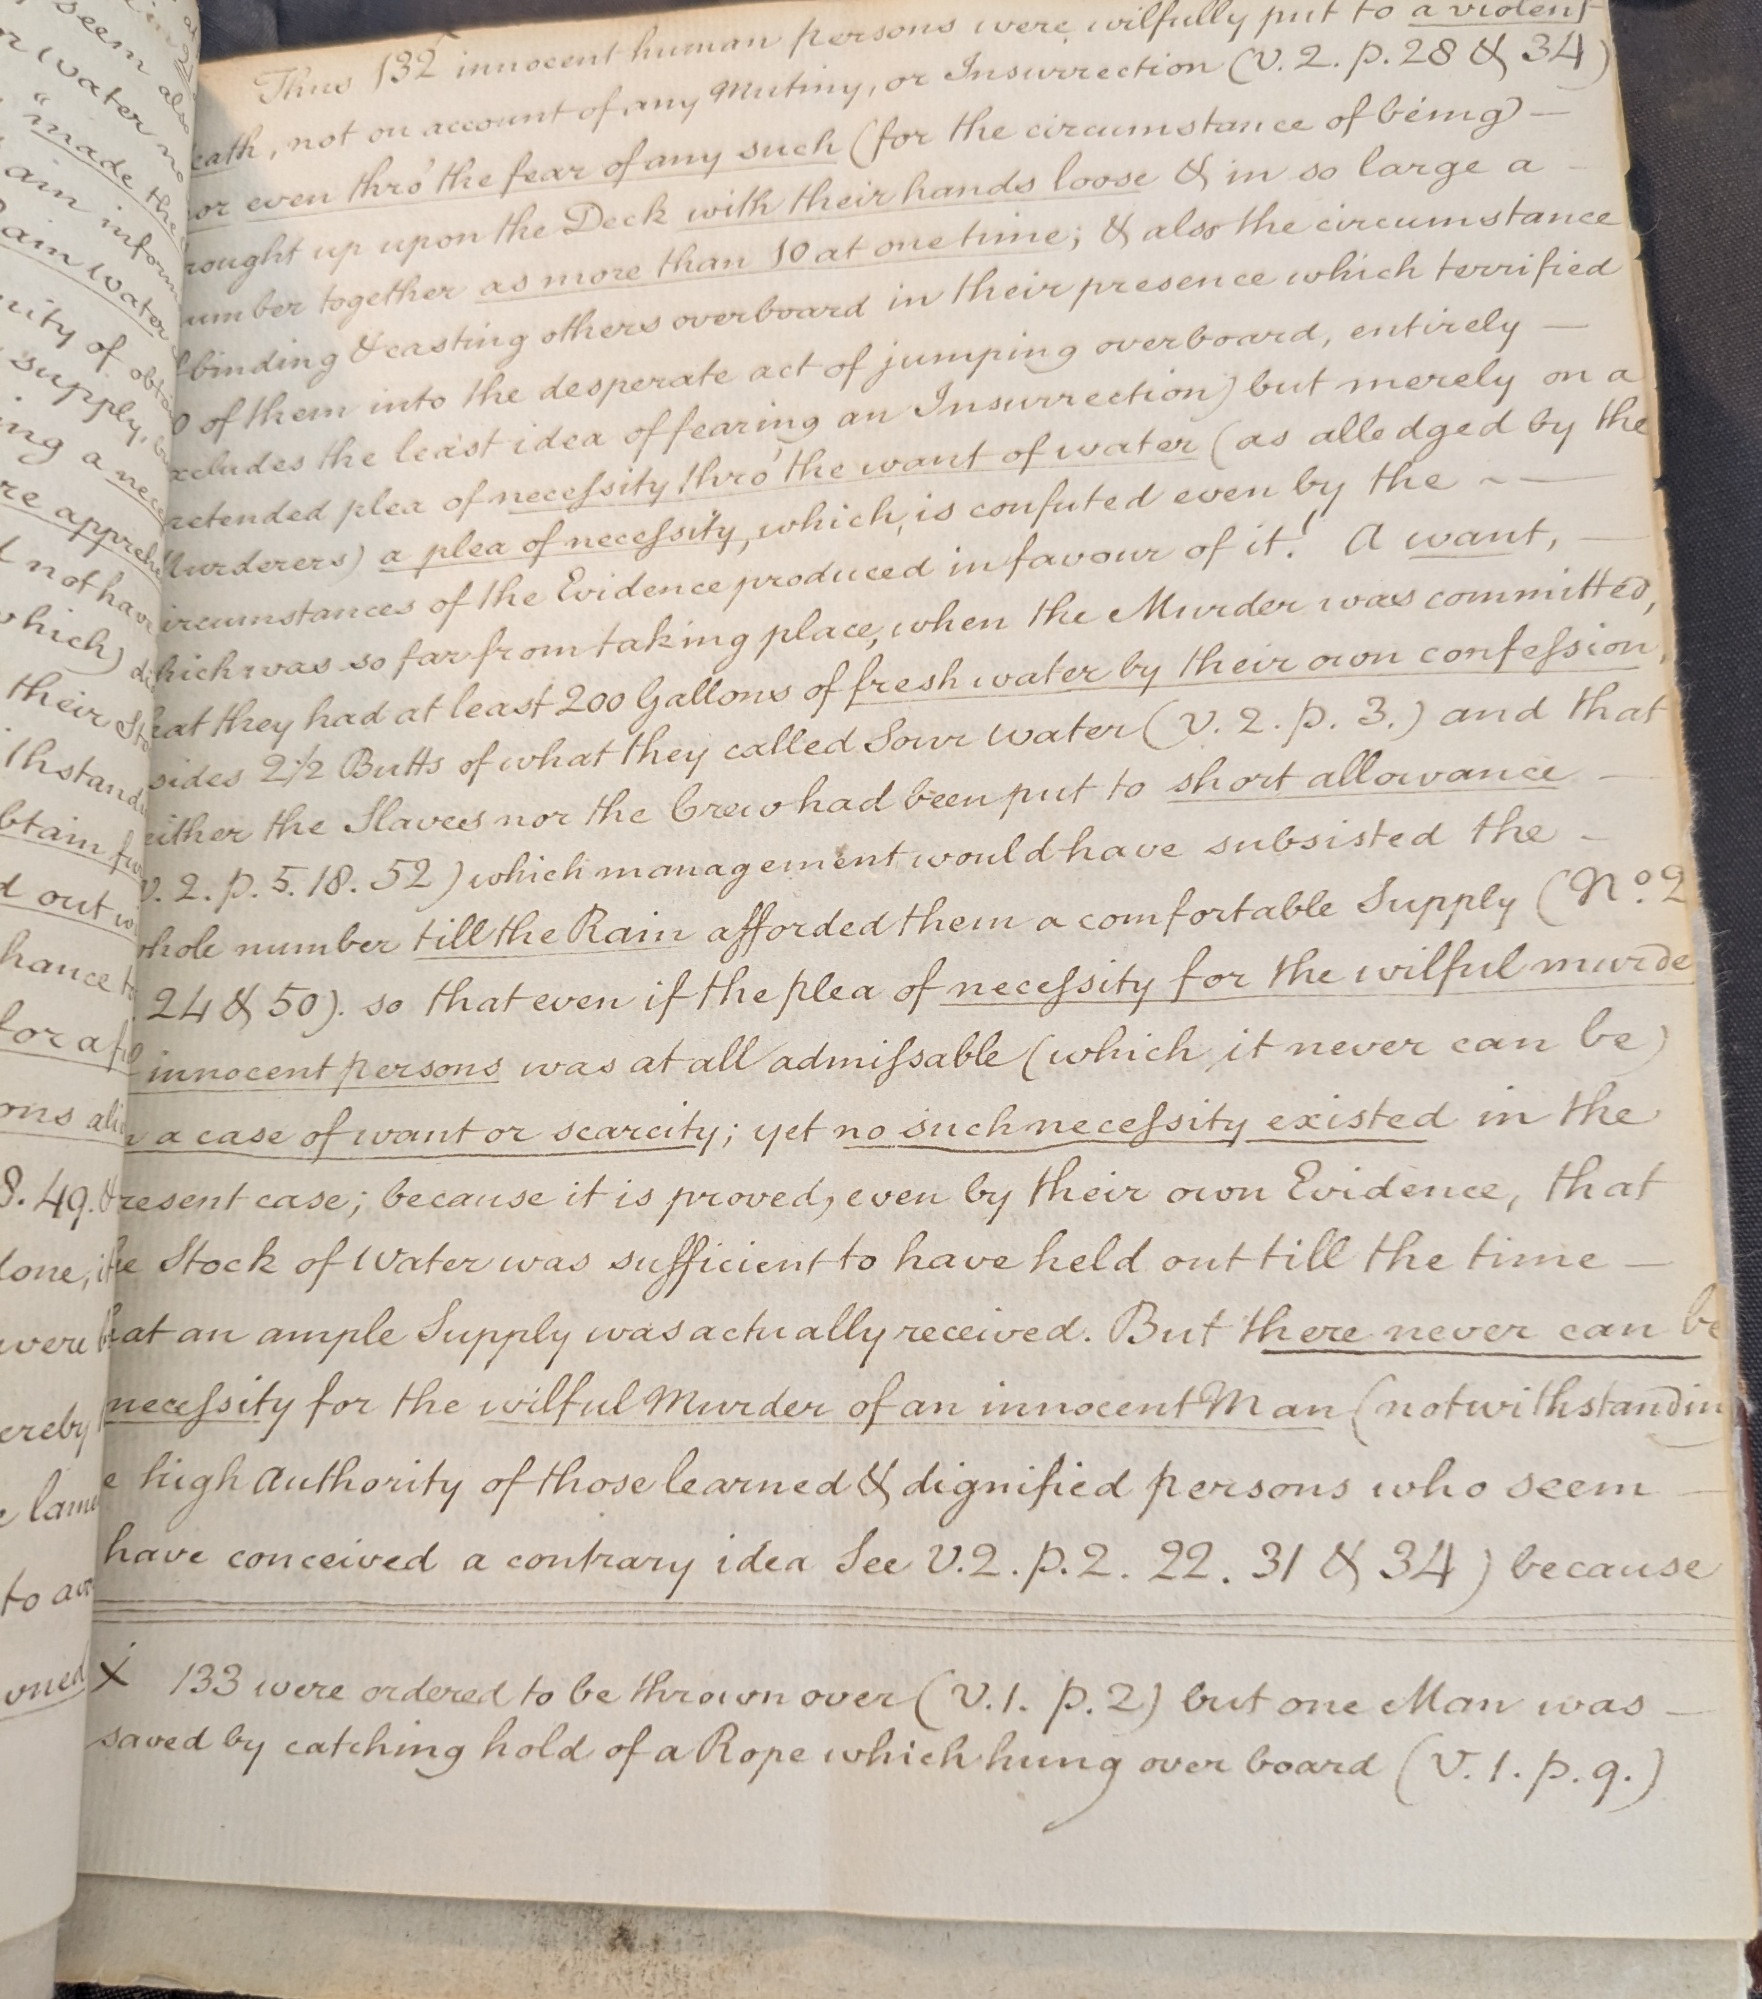 seem also
or water no
"made the
am inform
Rain water
nity of obtai
supply,
ing a nece
re apprehe
d not have
which) di
their Sto
ithstandi
btain
d out wi
hance t
for a
ons ali
8. 49. &
lone, it
were b
ereby
e lame
to avo
oned
Thus 132 innocent human persons were wilfully put to a violent
eath, not on account of any Mutiny, or Insurrection (V. 2. p. 28 & 34)
or even thro' the fear of any such (for the circumstance of being) —
rought up upon the Deck with their hands loose & in so large a —
umber together as more than 10 at one time; & also the circumstance
f binding & casting others overboard in their presence which terrified
0 of them into the desperate act of jumping overboard, entirely —
xcludes the least idea of fearing an Insurrection) but merely on a
retended plea of neceſsity thro' the want of water (as alledged by the
Murderers) a plea of neceſsity, which, is confuted even by the ~ —
ircumstances of the Evidence produced in favour of it! A want, —
hich was so far from taking place, when the Murder was committed,
hat they had at least 200 Gallons of fresh water by their own confeſsion,
sides 2½ Butts of what they called Sour water (V. 2. p. 3.) and that
either the Slaves nor the Crew had been put to short allowance —
V. 2. p. 5. 18. 52) which management would have subsisted the —
whole number till the Rain afforded them a comfortable Supply (No. 2
. 24 & 50). so that even if the plea of neceſsity for the wilful murde
innocent persons was at all admiſsable (which it never can be)
n a case of want or scarcity; yet no such neceſsity existed in the
resent case; because it is proved, even by their own Evidence, that
he Stock of Water was sufficient to have held out till the time —
hat an ample Supply was actually received. But there never can be
neceſsity for the wilful Murder of an innocent Man (notwithstandin
e high Authority of those learned & dignified persons who seem —
have conceived a contrary idea See V. 2. p. 2. 22. 31 & 34) because
X 133 were ordered to be thrown over (V. 1. p. 2) but one Man was —
saved by catching hold of a Rope which hung over board (V. 1. p. 9.)